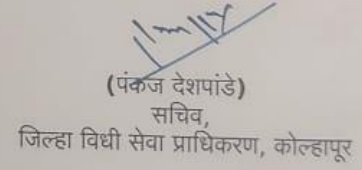 (पंकज देशपांडे)
सचिव,
जिल्हा विधी सेवा प्राधिकरण, कोल्हापूर